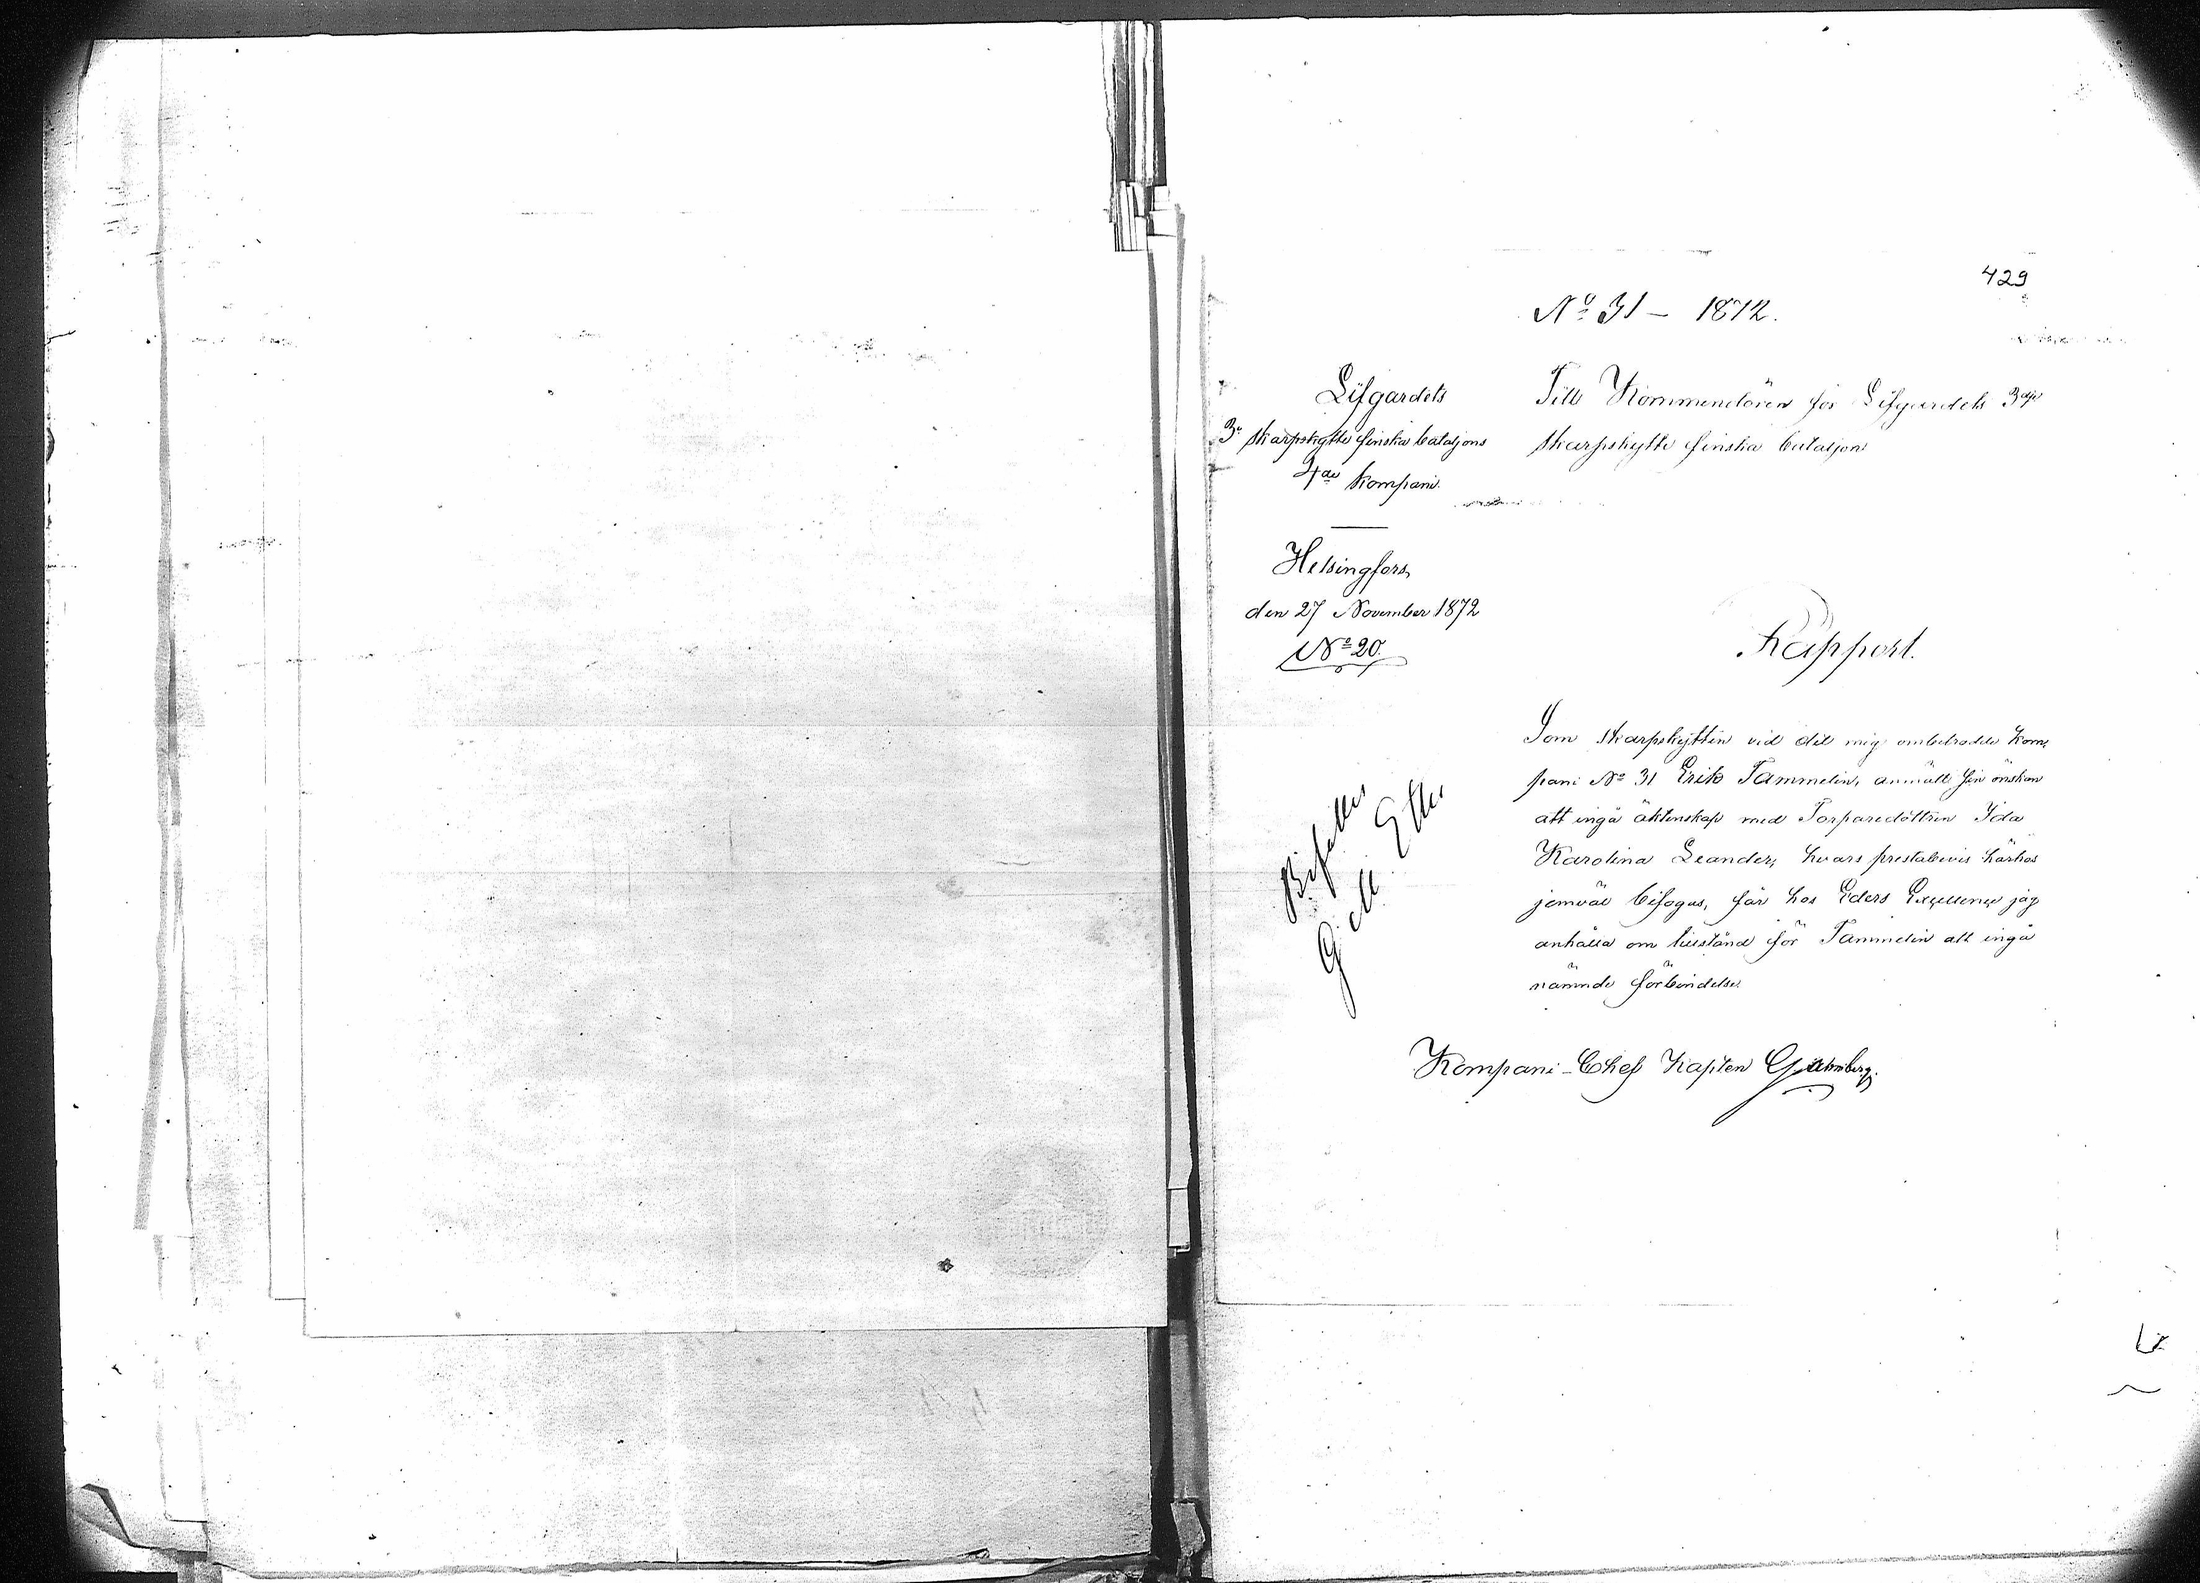 429
No 31 - 1872.
Lifgardets
3e skarpskytte finska bataljons
4de Kompani.
Helsingfors,
den 27 November 1872
No 20.
Till Kommendören för Lifgardets 3dje
skarpskytte finska bataljon
Rapport.
Som skarpskytten vid det mig ombetrodde Kom,
pani No 31 Erik Tammelin, anmält sin önskan
att ingå äktenskap med Torparedottren Ida
Karolina Leander, hvars prestabevis härhos
jemväl bifogas, får hos Eders Excellence jag
anhålla om tillstånd för Tammelin att ingå
nämnde förbindelse.
Bifalles
Kompani-Chef Kapten